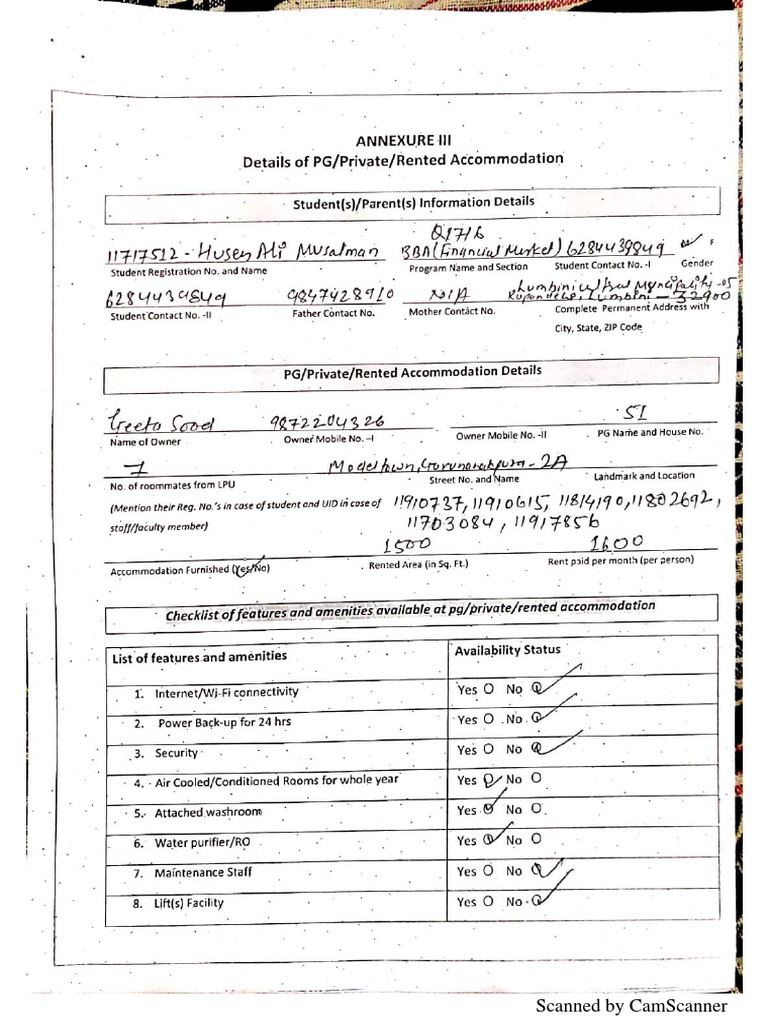 ANNEXURE III
Details of PG/Private/Rented Accommodation
Student(s)/Parent(s) Information Details
Q1716
11717512 - Husen Ali Musalman BBA (Financial Market) 6284439849 F
Student Registration No. and Name Program Name and Section Student Contact No. -I Gender
Lumbini cultural Municipality -05
6284439849 9847428910 N/A Rupandehi, Lumbini - 32900
Student Contact No. -II Father Contact No. Mother Contact No. Complete Permanent Address with
City, State, ZIP Code
PG/Private/Rented Accommodation Details
Geeta Sood 9872204326 51
Name of Owner Owner Mobile No. -I Owner Mobile No. -II PG Name and House No.
7 Model town, Gurunanakpura - 2A
No. of roommates from LPU Street No. and Name Landmark and Location
(Mention their Reg. No.'s in case of student and UID in case of 11910737, 11910615, 11814190, 11802692,
staff/faculty member) 11703084, 11917856
1500 1600
Accommodation Furnished (Yes/No) Rented Area (in Sq. Ft.) Rent paid per month (per person)
Checklist of features and amenities available at pg/private/rented accommodation
List of features and amenities Availability Status
1. Internet/Wi-Fi connectivity Yes O No O
2. Power Back-up for 24 hrs Yes O No O
3. Security Yes O No O
4. Air Cooled/Conditioned Rooms for whole year Yes O No O
5. Attached washroom Yes O No O
6. Water purifier/RO Yes O No O
7. Maintenance Staff Yes O No O
8. Lift(s) Facility Yes O No O
Scanned by CamScanner